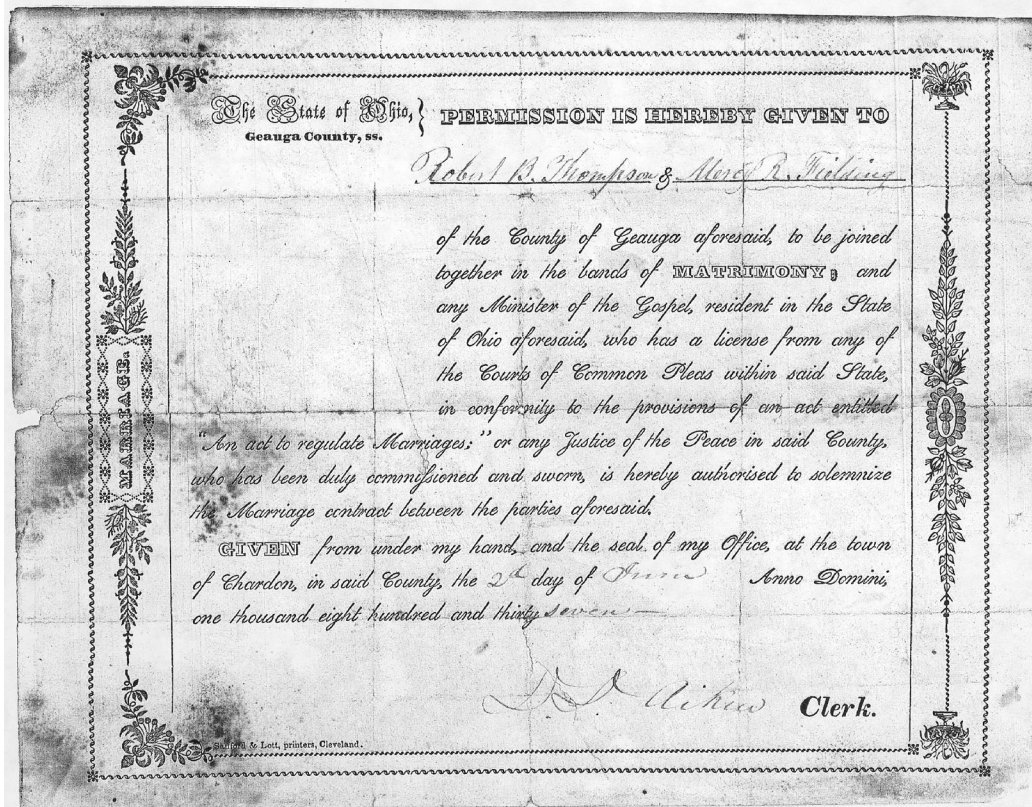 The State of Ohio, } PERMISSION IS HEREBY GIVEN TO
Geauga County, ss.
Robert B. Thompson & Mercy R. Fielding
of the County of Geauga aforesaid, to be joined
together in the bands of MATRIMONY; and
any Minister of the Gospel, resident in the State
of Ohio aforesaid, who has a license from any of
the Courts of Common Pleas within said State,
in conformity to the provisions of an act entitled
"An act to regulate Marriages;" or any Justice of the Peace in said County,
who has been duly commissioned and sworn, is hereby authorised to solemnize
the Marriage contract between the parties aforesaid.
GIVEN from under my hand, and the seal of my Office, at the town
of Chardon, in said County, the 2d day of June Anno Domini,
one thousand eight hundred and thirty seven
D D Aiken Clerk.
Sanford & Lott, printers, Cleveland.
MARRIAGE.